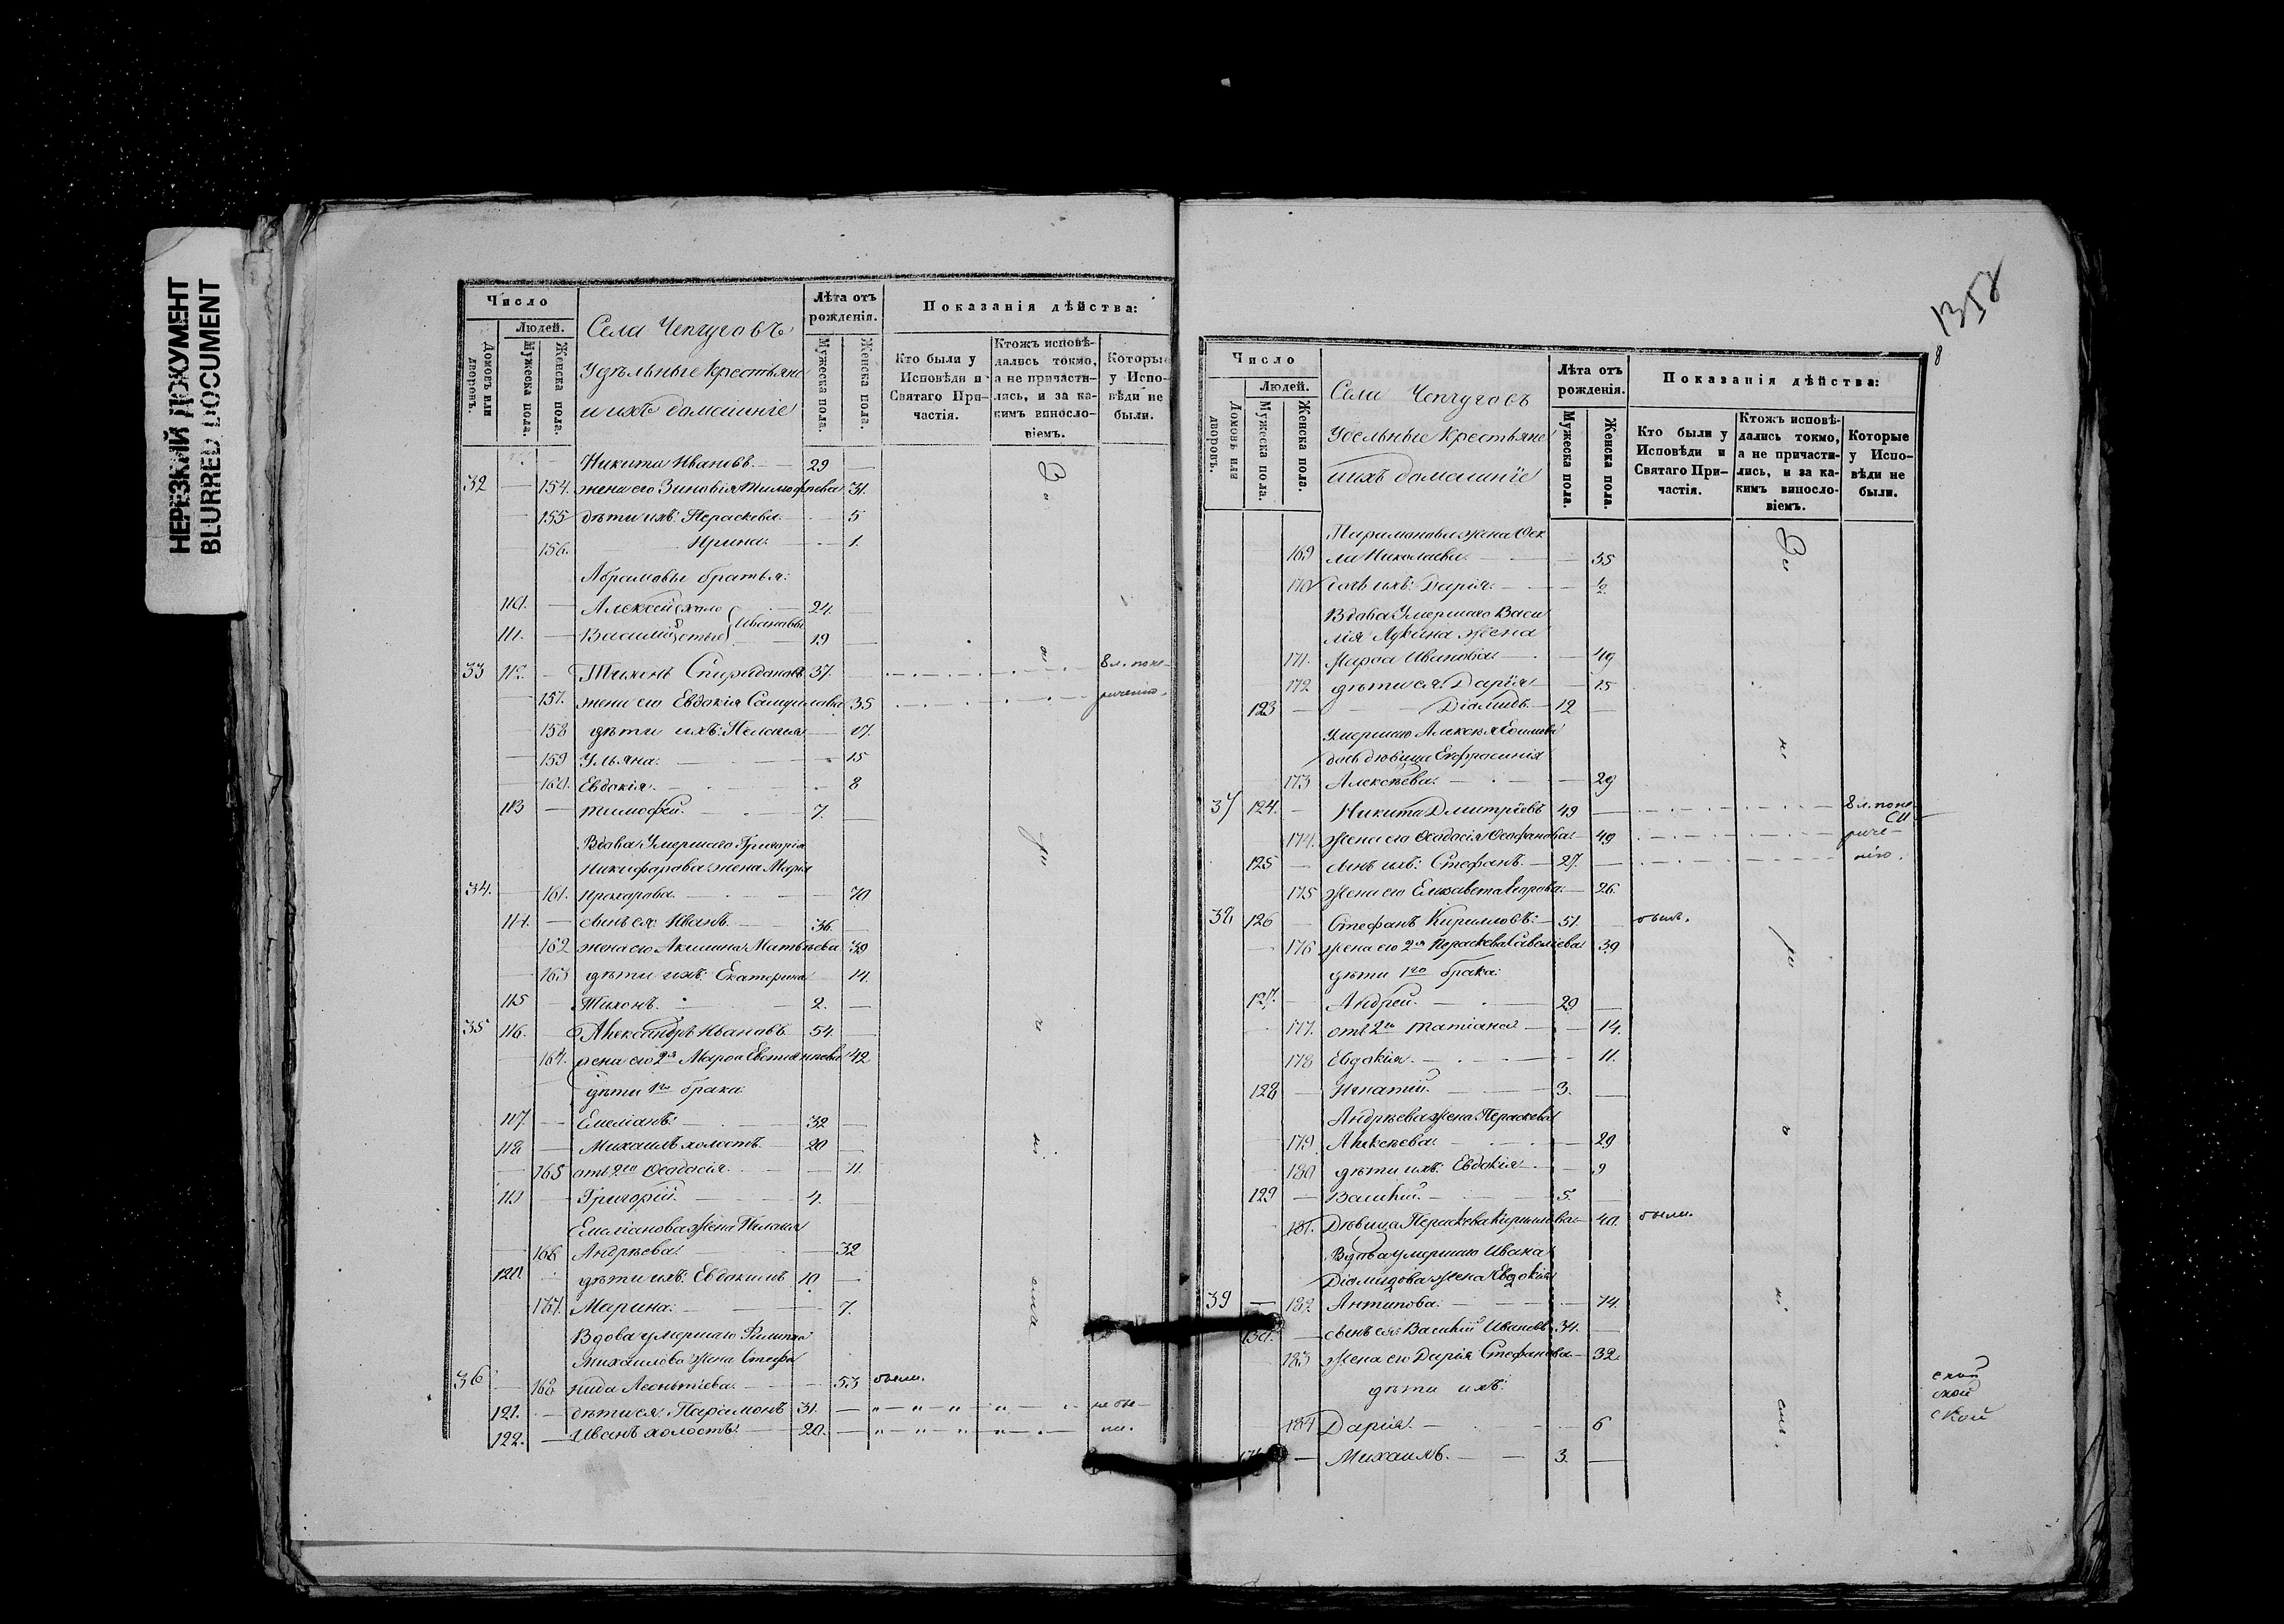 НЕРЕЗКИЙ ДОКУМЕНТ
BLURRED DOCUMENT
Число
Людей.
Домовъ или дворовъ.
Мужеска пола.
Женска пола.
Села Чепчуговъ
Удѣльные Крестьяне
и ихъ домашніе
Лѣта отъ рожденія.
Мужеска пола.
Женска пола.
Показанія дѣйства:
Кто были у Исповѣди и Святаго Причастія.
Ктожъ исповѣдались токмо, а не причастились, и за какимъ винословіемъ.
Которые у Исповѣди не были.
Никита Ивановъ. 29
32 154. жена его Зиновія Тимофѣева 31.
155 дѣти ихъ: Параскева 5
156. Ирина. 1.
Абрамовы братья:
110. Алексей холо 24.
Ивановы
111. Василій стые 19
33 112. Тихонъ Спиридоновъ 37. 8 л. по не-
157. жена его Евдокія Самуилова 35
158 дѣти ихъ: Пелагия 17.
159 Ульяна: 15
160. Евдокія. 8
113 Тимофей. 7.
Вдова Умершаго Григорія
Никифорова жена Марія
34. 161. Прохорова. 70
114. сынъ ея: Иванъ 36.
162 жена его Акилина Матвѣева 39
163 дѣти ихъ: Екатерина 14.
115 Тихонъ. 2.
35 116. Александръ Ивановъ 54.
164. жена его 2я Марѳа 42
дѣти 1го брака
117. Емеліанъ: 32
118 Михаилъ холостъ 20
165 отъ 2го Ѳеодосія. 11.
119 Григорій. 4.
Емеліанова жена Пелагия
166 Андрѣева. 32
120. дѣти ихъ: Евдокимъ 10.
167. Марина: 7.
Вдова умершаго Филиппа
Михайлова жена Стефа
36 168 нида Леонтіева. 53 были.
121. дѣти ея: Парамонъ 31. не бы-
122. Иванъ холостъ. 20. ли.
1358
8
Число
Людей.
Домовъ или дворовъ.
Мужеска пола.
Женска пола.
Села Чепчуговъ
Удельные Крестьяне
и ихъ домашніе
Лѣта отъ рожденія.
Мужеска пола.
Женска пола.
Показанія дѣйства:
Кто были у Исповѣди и Святаго Причастія.
Ктожъ исповѣдались токмо, а не причастились, и за какимъ винословіемъ.
Которые у Исповѣди не были.
Парамонова жена Ѳек
169 ла Николаева. 35
170 дочь ихъ: Дарія. ½
Вдова Умершаго Васи
лія Лукина жена
171. Марѳа Иванова 49
172 дѣти ея: Дарія 15
123 Діамидъ. 12
Умершаго Алексѣя
дочь дѣвица Евфросинія
173 Алексѣева. 29
37 124. Никита Дмитріевъ 49 8 л. по не-
174. жена его Ѳеодосія Ѳеофанова 49
125 сынъ ихъ: Стефанъ. 27.
175 жена его Елисавета 26.
38 126 Стефанъ Кириловъ: 51. былъ.
176 жена его 2я Параскева Савеліева 39
дѣти 1го брака:
127. Андрей. 29
177. отъ 2го Татіана 14.
178 Евдокія. 11.
128 Игнатій. 3.
Андрѣева жена Параскева
179 Алексѣева. 29
180 дѣти ихъ: Евдокія 9
129 Василій. 5.
181. Дѣвица Параскева Кирилова 40. были.
Вдова умершаго Ивана
Діамидова жена Евдокія
39 182 Антипова. 74.
130. сынъ ея: Василій Ивановъ 34.
183 жена его Дарія Стефанова 32.
дѣти ихъ:
184 Дарія. 6
Михаилъ. 3.
ской
ской
ской